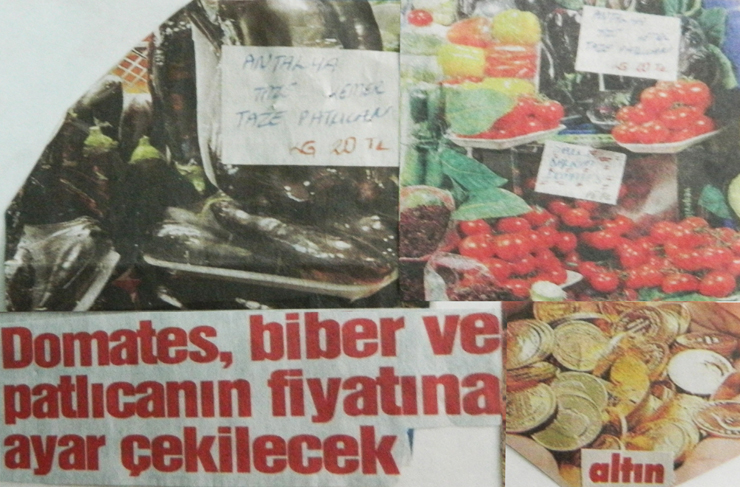 ANTALYA
TAZE PATLICAN
KG 20 TL
TAZE PATLICAN
20 TL
Domates, biber ve
patlıcanın fiyatına
ayar çekilecek
altın